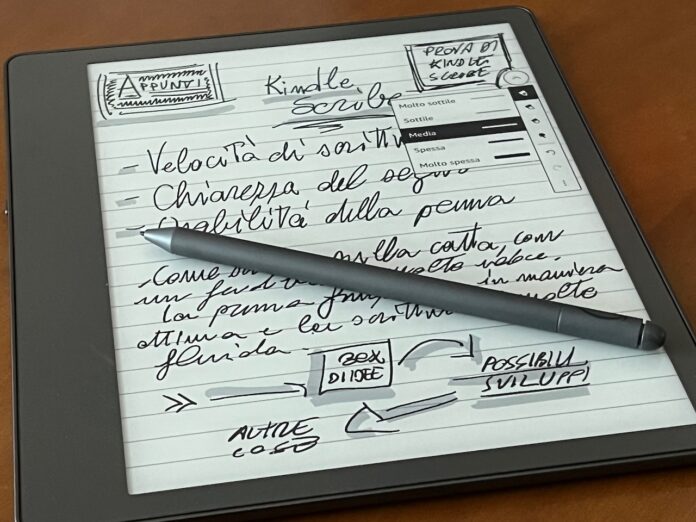 APPUNTI
Kindle
Scribe
PROVA DI
KINDLE
SCRIBE
Molto sottile
Sottile
Media
Spessa
Molto spessa
- Velocità di
- Chiarezza del
- della penna
Come sulla carta, con
un molto veloce.
La penna in maniera
ottima e la molto
fluida.
BOX
DI IDEE
POSSIBILI
SVILUPPI
AUTRE
COSE